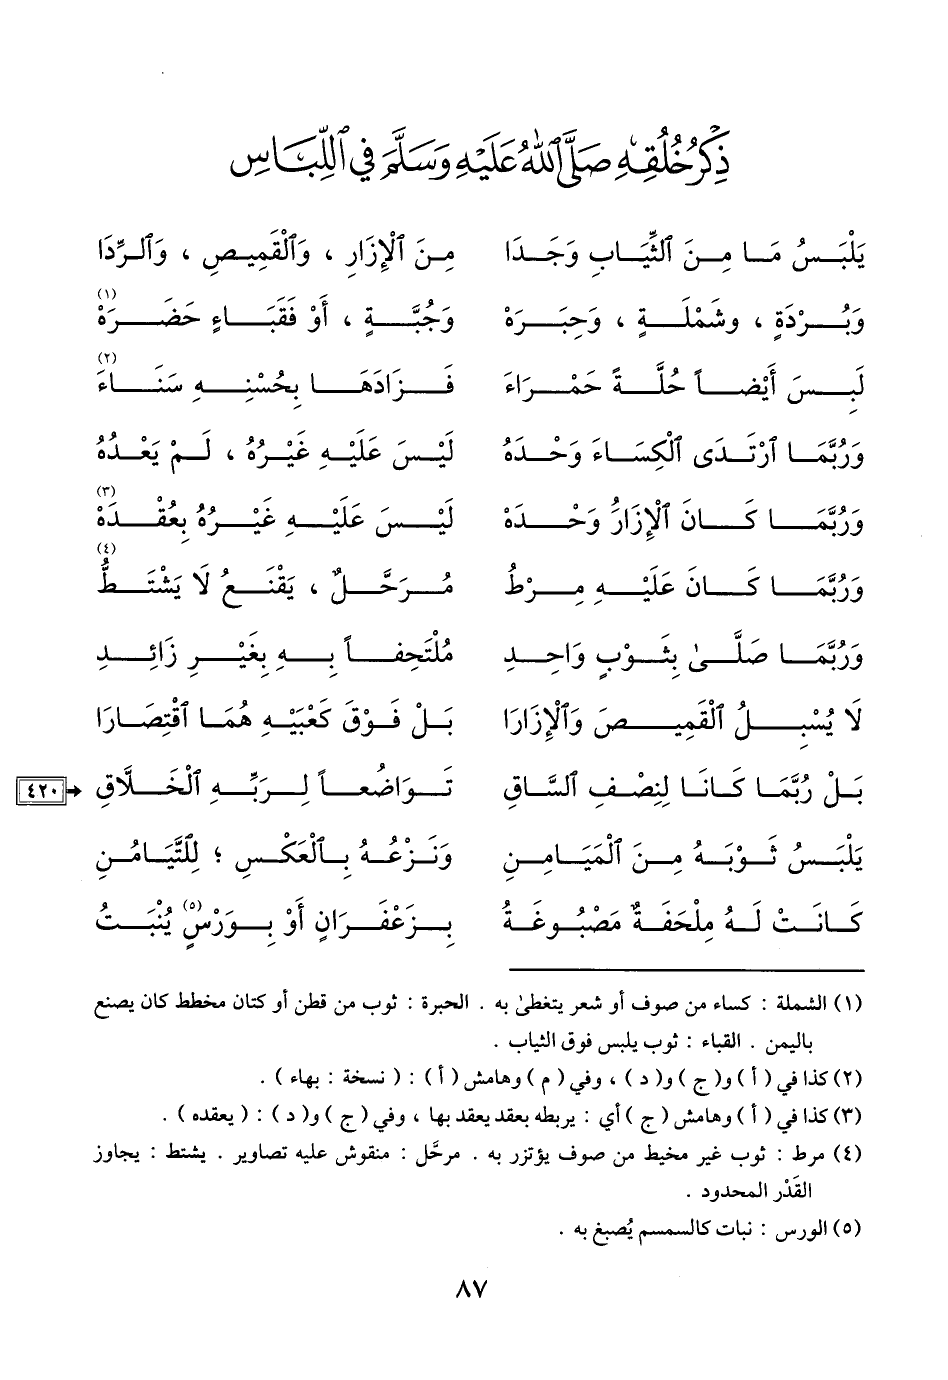 ذِكْرُ خُلُقِهِ صَلَّى ٱللَّهُ عَلَيْهِ وَسَلَّمَ فِي ٱللِّبَاسِ
يَلْبَسُ مَا مِنَ ٱلثِّيَابِ وَجَدَا مِنَ ٱلْإِزَارِ ، وَٱلْقَمِيصِ ، وَٱلرِّدَا
وَبُرْدَةٍ ، وشَمْلَةٍ ، وَحِبَرَهْ وَجُبَّةٍ ، أَوْ فَقَبَاءٍ حَضَرَهْ (١)
لَبِسَ أَيْضاً حُلَّةً حَمْرَاءَ فَزَادَهَا بِحُسْنِهِ سَنَاءَ (٢)
وَرُبَّمَا ٱرْتَدَى ٱلْكِسَاءَ وَحْدَهُ لَيْسَ عَلَيْهِ غَيْرُهُ ، لَمْ يَعْدُهُ
وَرُبَّمَا كَانَ ٱلْإِزَارُ وَحْدَهْ لَيْسَ عَلَيْهِ غَيْرُهُ بِعُقْدَهْ (٣)
وَرُبَّمَا كَانَ عَلَيْهِ مِرْطُ مُرَحَّلٌ ، يَقْنَعُ لَا يَشْتَطُّ (٤)
وَرُبَّمَا صَلَّىٰ بِثَوْبٍ وَاحِدِ مُلْتَحِفاً بِهِ بِغَيْرِ زَائِدِ
لَا يُسْبِلُ ٱلْقَمِيصَ وَٱلْإِزَارَا بَلْ فَوْقَ كَعْبَيْهِ هُمَا ٱقْتِصَارَا
بَلْ رُبَّمَا كَانَا لِنِصْفِ ٱلسَّاقِ تَوَاضُعاً لِرَبِّهِ ٱلْخَلَّاقِ ٤٢٠
يَلْبَسُ ثَوْبَهُ مِنَ ٱلْمَيَامِنِ وَنَزْعُهُ بِٱلْعَكْسِ ؛ لِلتَّيَامُنِ
كَانَتْ لَهُ مِلْحَفَةٌ مَصْبُوغَةُ بِزَعْفَرَانٍ أَوْ بِوَرْسٍ (٥) يُنْبَتُ
(١) الشملة : كساء من صوف أو شعر يتغطىٰ به . الحبرة : ثوب من قطن أو كتان مخطط كان يصنع
باليمن . القباء : ثوب يلبس فوق الثياب .
(٢) كذا في ( أ ) و( ج ) و( د ) ، وفي ( م ) وهامش ( أ ) : ( نسخة : بهاء ) .
(٣) كذا في ( أ ) وهامش ( ج ) أي : يربطه بعقد يعقد بها ، وفي ( ج ) و( د ) : ( يعقده ) .
(٤) مرط : ثوب غير مخيط من صوف يؤتزر به . مرحَّل : منقوش عليه تصاوير . يشتط : يجاوز
القَدْر المحدود .
(٥) الورس : نبات كالسمسم يُصبغ به .
٨٧